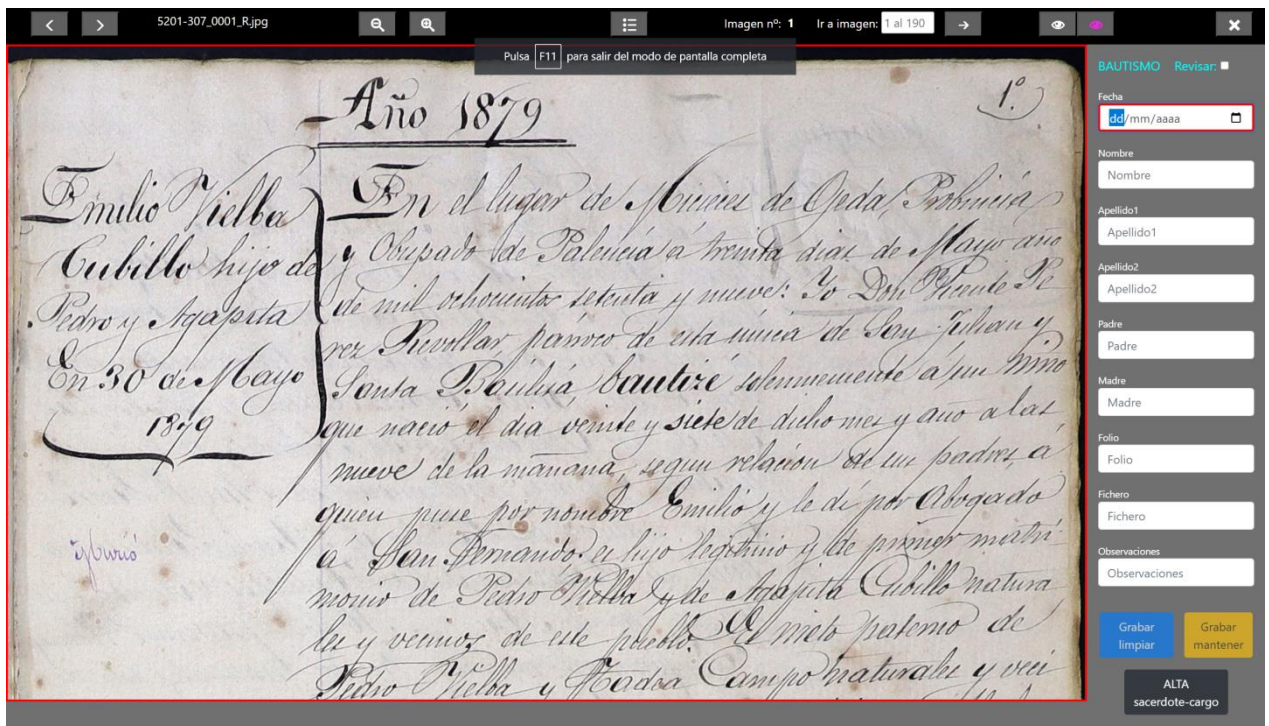 5201-307_0001_R.jpg
Imagen nº: 1
Ir a imagen: 1 al 190
Pulsa F11 para salir del modo de pantalla completa
Año 1879
1º.
Emilio Vielba
Cubillo hijo de
Pedro y Agapita
En 30 de Mayo
1879
Murió
En el lugar de Micieces de Ojeda, Probincia
y Obispado de Palencia á treinta dias de Mayo año
de mil ochocientos setenta y nueve: Yo Don Vicente Pe
rez Revollar parroco de esta unica de San Julian y
Santa Basilisa, bautizé solemnemente á un niño
que nació el dia veinte y siete de dicho mes y año a las
nueve de la mañana, segun relacion de sus padres, á
quien puse por nombre Emilio y le di por Abogado
á San Fernando: es hijo legitimo y de primer matri-
monio de Pedro Vielba y de Agapita Cubillo natura
les y vecinos de este pueblo. Es nieto paterno de
Pedro Vielba y Campo naturales y veci
BAUTISMO Revisar:
Fecha
dd/mm/aaaa
Nombre
Nombre
Apellido1
Apellido1
Apellido2
Apellido2
Padre
Padre
Madre
Madre
Folio
Folio
Fichero
Fichero
Observaciones
Observaciones
Grabar limpiar
Grabar mantener
ALTA
sacerdote-cargo